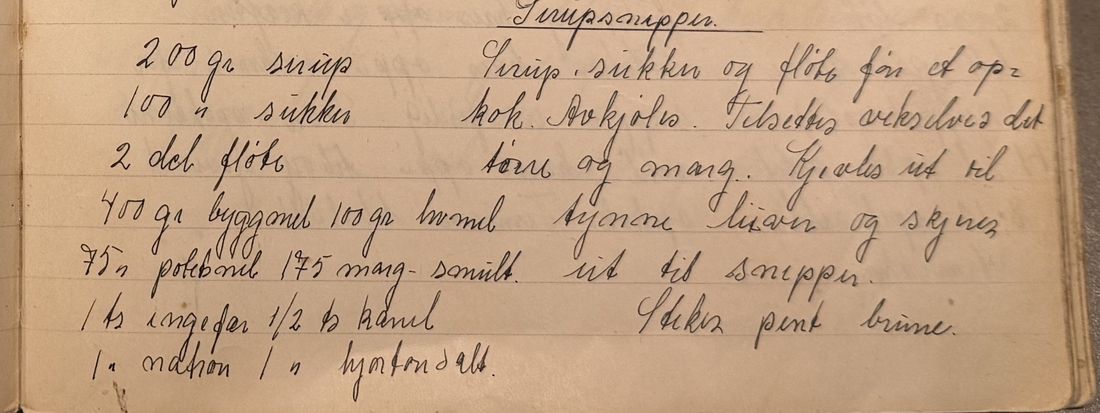 Sirupsnipper.
200 gr sirup
100 " sukker
2 del fløte
400 gr byggmel 100 gr hvmel
75 " potetmel 175 marg - smult.
1 ts ingefær 1/2 ts kanel
1 " natron 1 " hjortonsalt.
Sirup. sukker og fløte før et op=
kok. Avkjøles. Tilsettes vekselvis det
tørre og marg. Kjevles ut til
tynne leiver og skjeres
ut til snipper.
Stekes pent brune.